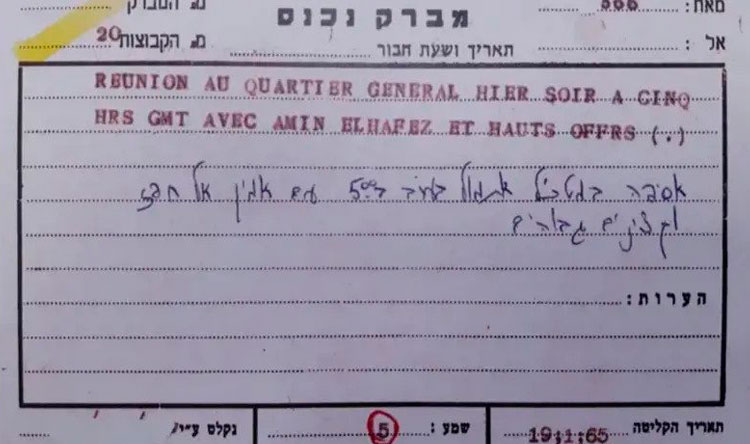 מאת: 566
מברק נכנס
מ. המברק
אל :
תאריך ושעת חבור
מ. הקבוצות 20
REUNION AU QUARTIER GENERAL HIER SOIR A CINQ
HRS GMT AVEC AMIN ELHAFEZ ET HAUTS OFFRS (.)
אסיפה במטכ"ל אתמול בערב ב 500 עם אמין אל חפז
וקצינים גבוהים
הערות :
תאריך הקליטה 19.1.65
שמע : 5
נקלט ע"י/